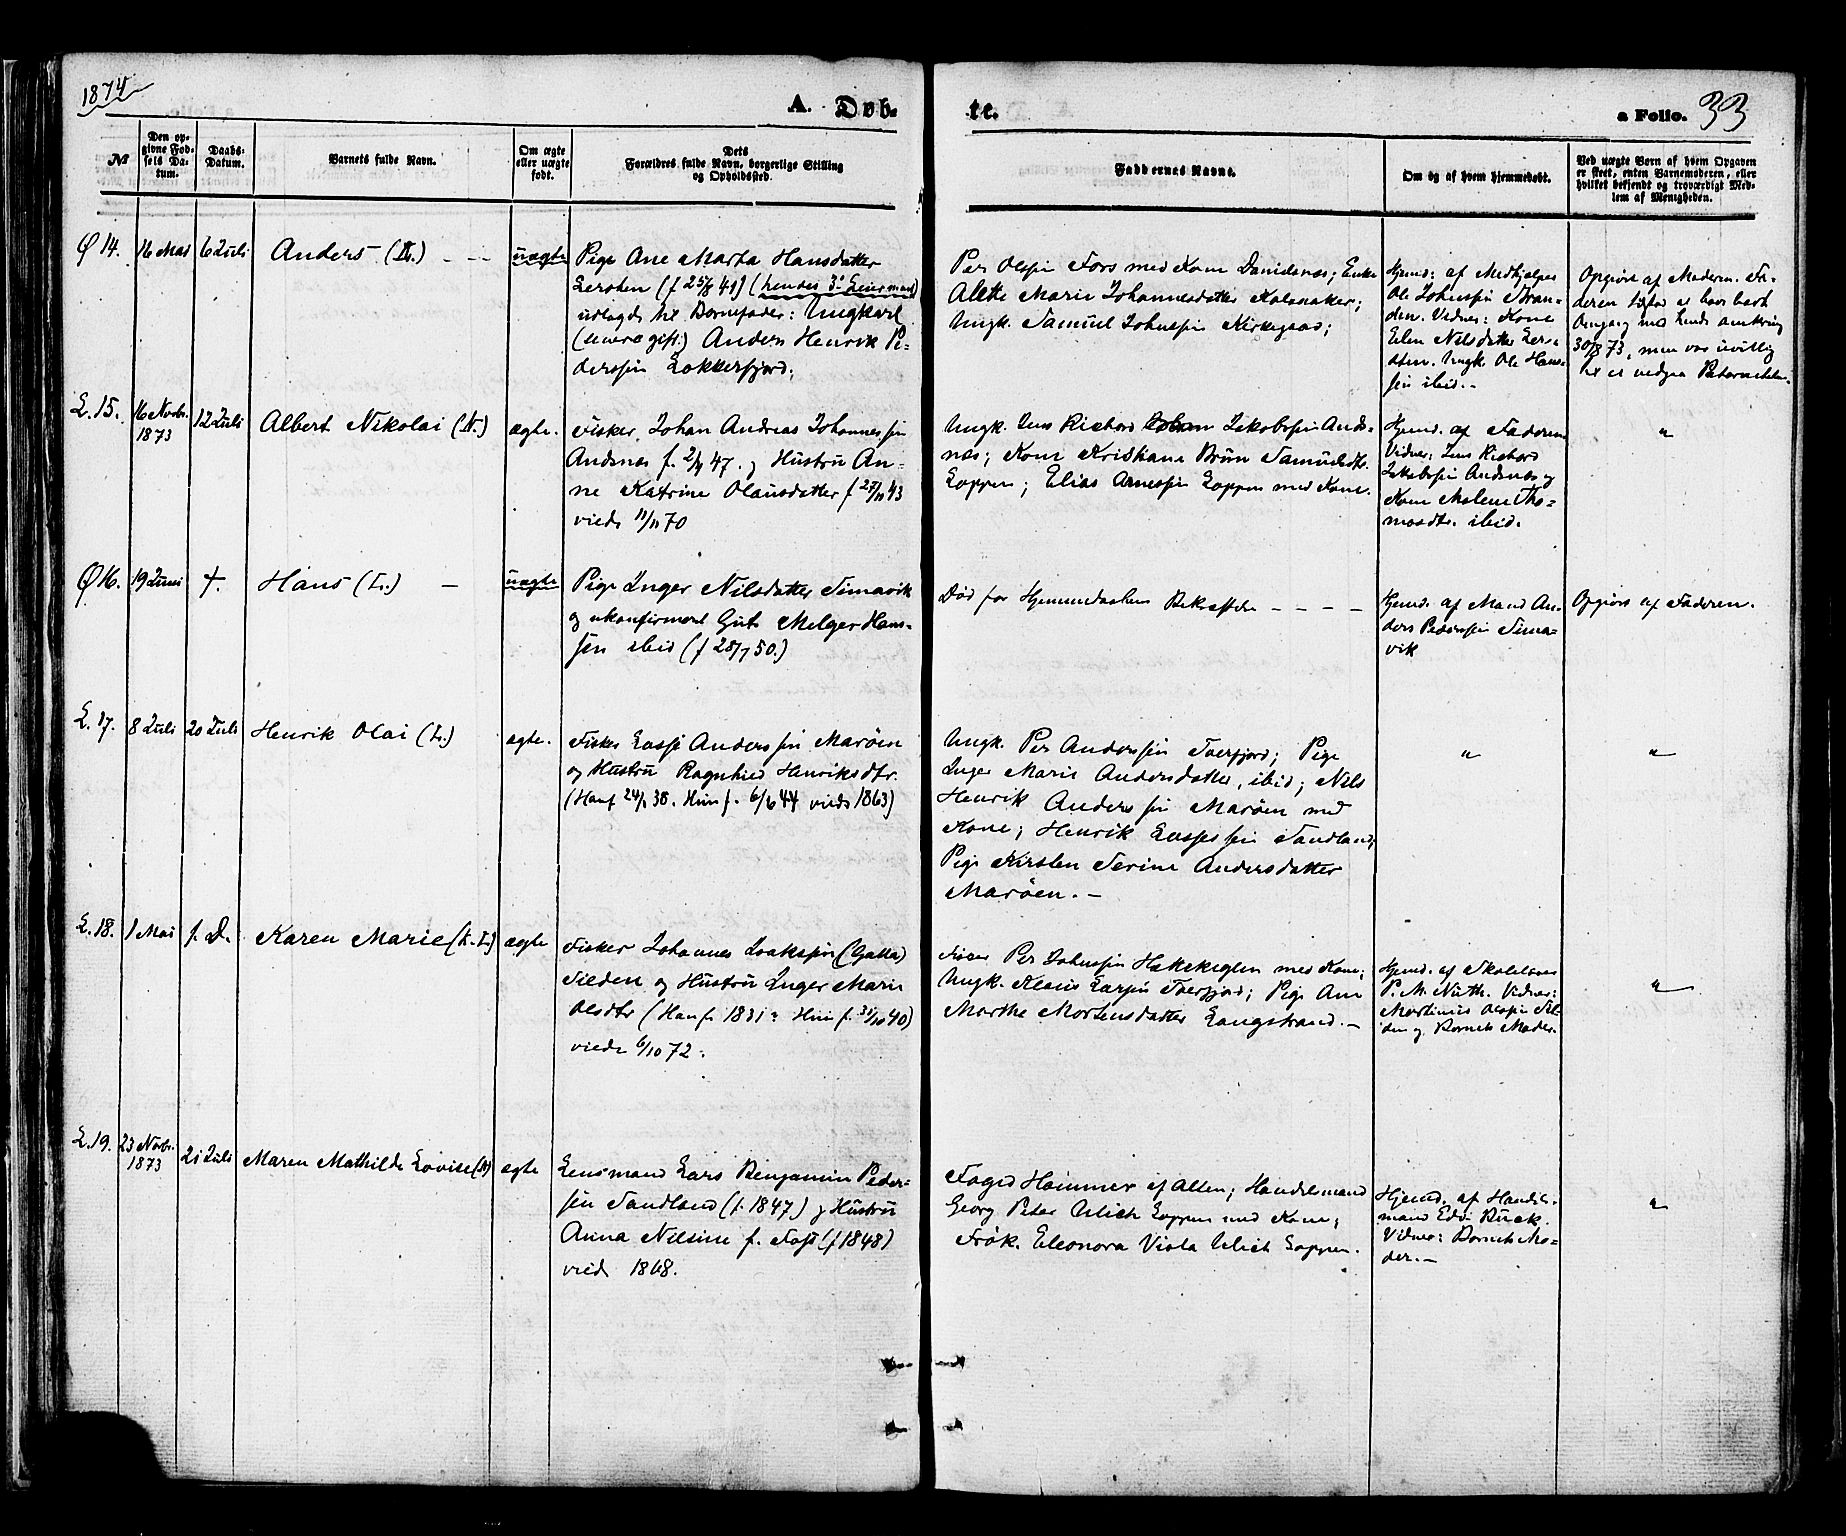 1874
A. Døb-
te.
a Folio. 33
№
Den op-
givne Fød-
sels Da-
tum.
Daabs-
Datum.
Barnets fulde Navn.
Om ægte
eller uægte
født.
Dets
Forældres fulde Navn, borgerlige Stilling
og Opholdssted.
Faddernes Navne.
Om og af hvem hjemmedøbt.
Ved uægte Børn af hvem Opgaven
er skeet, enten Barnemoderen, eller
hvilket bekjendt og troværdigt Med-
lem af Menigheden.
Ø 14.
16 Mai
6 Juli
Anders
uægte
Pige Ane Marta Hansdatter
(f 25/8 41) (hendes 3' Leiermaal)
udlagde til Barnefader: Ungkarl
(senere gift.) Anders Henrik Pe-
derssen Lokkerfjord.
Per Olssen Fors med Kone Danielsnes; Enke
Alette Marie Johannesdatter
Ungk. Samuel Johnssen
Hjemd. af Medhjelper
Ole Johnssen Stran-
den. Vidner: Kone
Elen Nilsdatter
Ungk. Ole Hans-
sen ibid.-
Opgivet af Moderen. Fa-
deren
Omgang med hende omkring
30/8 73, men var uvillig
til at vedgaa
L. 15.
16 Novbr.
1873
12 Juli
Albert Nikolai (N.)
ægte.
Fisker Johan Andreas Johannessen
Andsnes f. 2/4 47. og Hustru An-
ne Katrine Olausdatter f 27/11 43
viede 11/11 70
Ungk. Jens Richard Jakobssen Ands-
nes; Kone Kristiane Brun Samuelsdtr.
Loppen; Elias Arnessen Loppen med Kone.
Hjemd. af Faderen
Vidner: Jens Richard
Jakobssen Andsnes og
Kone Malene Tho-
masdtr. ibid.
"
Ø 16.
19 Juni
+.
Hans (L.) -
uægte
Pige Inger Nilsdatter Simavik
og ukonfirmeret Gut Melger Hans-
sen ibid (f 28/7 50.)
Død før Hjemmedaabens Bekræftelse - - - -
Hjemd. af Mand An-
ders Pederssen Sima-
vik
Opgivet af Faderen.
L. 17.
8 Juli
20 Juli
Henrik Olai (L.)
ægte.
Fisker Lasse Anderssen Marøen
og Hustru Ragnhild Henriksdtr.
(Han f 24/1 38. Hun f. 6/6 44 viede 1863)
Ungk. Per Anderssen Tverfjord; Pige
Inger Marie Andersdatter, ibid; Nils
Henrik Anderssen Marøen med
Kone; Henrik Lassessen Sandland;
Pige Kirsten Serine Andersdatter
Marøen. -
"
"
L. 18.
1 Mai
s. D.
Karen Marie (K. L.)
ægte
Fisker Johannes Isakssen (Gatta)
Silden og Hustru Inger Marie
Olsdtr (Han f. 1831? Hun f. 31/10 40)
viede 6/10 72.
Per Johnssen med Kone;
Ungk. Larssen Tverfjord; Pige Ane
Marthe Mortensdatter Langstrand. -
Hjemd. af Skolelærer
P. M. Nuth. Vidner:
Martinus Olssen Sil-
den og Barnets Moder.
"
L. 19.
23 Novbr.
1873
21 Juli
Maren Mathilde Lovise (N)
ægte
Lensmand Lars Benjamin Peder-
sen Sandland (f. 1847) og Hustru
Anna Nilsine f. Fost (f 1848)
viede 1868.
Foged Hammer af Alten; Handelsmand
Georg Peter Ulich Loppen med Kone;
Frøk. Eleonora Viola Ulich Loppen.
Hjemd. af Handels-
mand Edv. Buck.
Vidner: Barnets Mo-
der. -
"